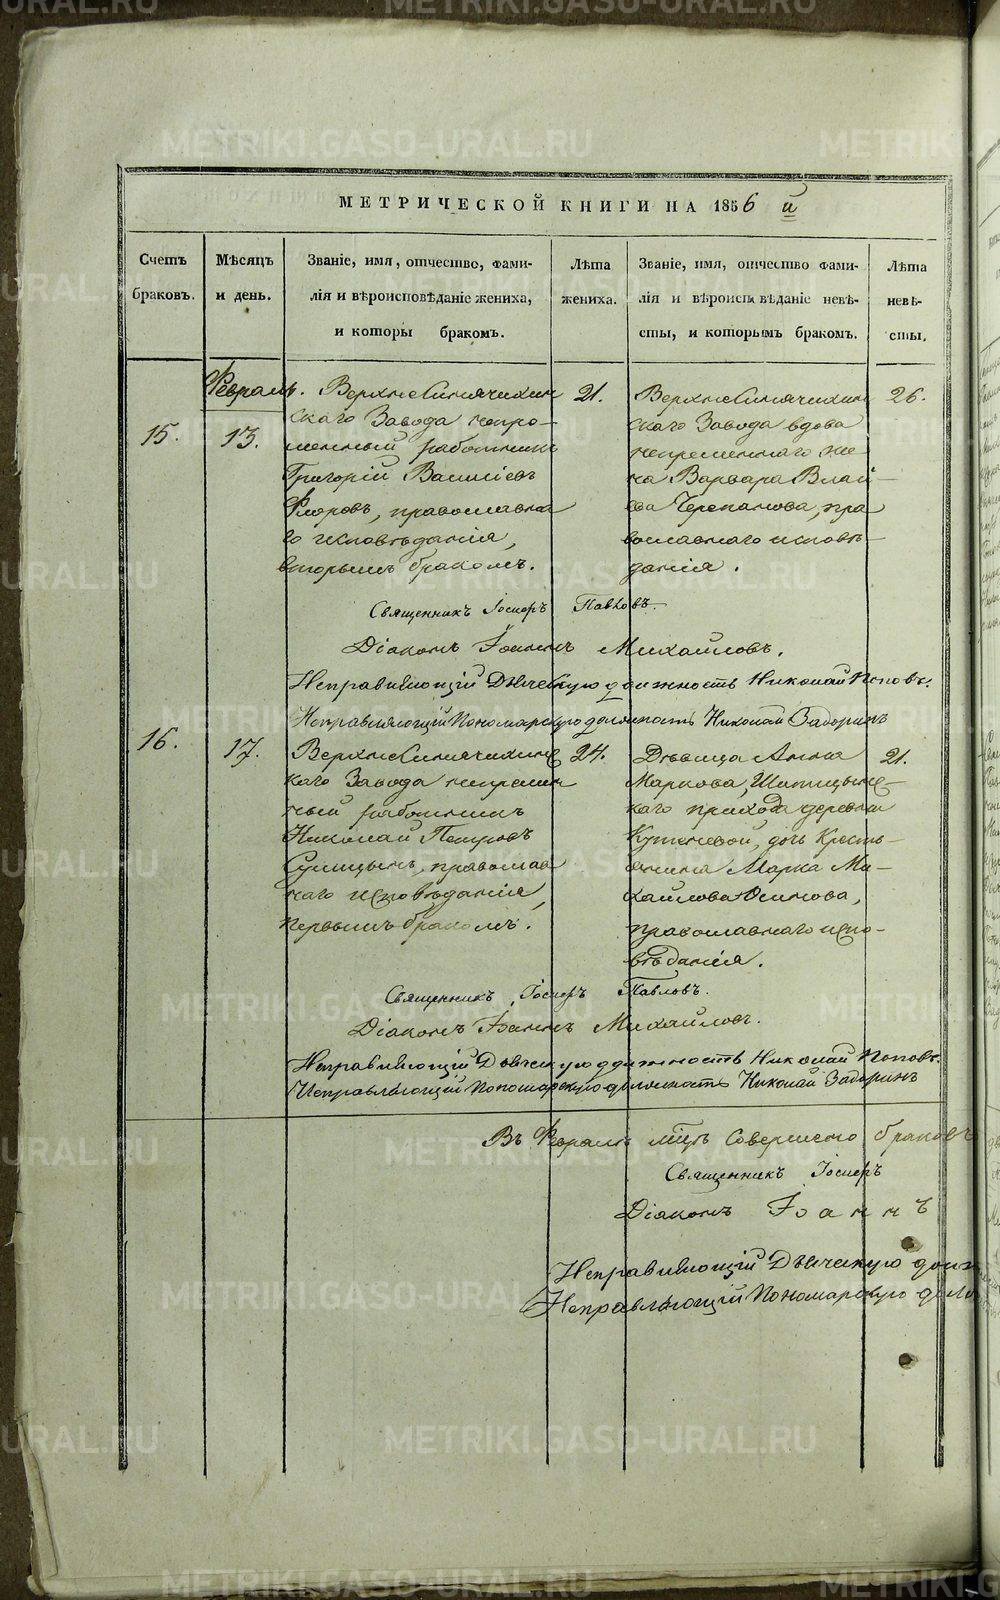 МЕТРИЧЕСКОЙ КНИГИ НА 1856 й
Счетъ браковъ.
Мѣсяцъ и день.
Званіе, имя, отчество, фами-
лія и вѣроисповѣданіе жениха,
и которы бракомъ.
Лѣта жениха.
Званіе, имя, отчество фами-
лія и вѣроисп вѣданіе невѣ-
сты, и которымъ бракомъ.
Лѣта невѣ-
сты.
Февраль.
15.
13.
ВерхнеСинячихин
скаго Завода непре-
менный работникъ
Григорій Василіевъ
Флоровъ, православна
го исповѣданія,
вторымъ бракомъ.
21.
ВерхнеСинячихин
скаго Завода вдова
непременнаго же-
на Варвара
ва Черепанова, пра
вославнаго исповѣ-
данія.
26.
Священникъ Іосифъ Павловъ.
Діаконъ Іоаннъ Михайловъ.
Исправляющій Дьяческую должность Николай Поповъ.
Исправляющій Пономарскую должность Николай Задоринъ
16.
17.
ВерхнеСинячихинс
каго Завода непремен
ный работникъ
Николай Петровъ
православ
наго исповѣданія,
первымъ бракомъ.
24.
Дѣвица Анна
Маркова,
каго прихода деревни
дочь Кресть-
янина Марка Ми-
хайлова Осипова,
православнаго испо-
вѣданія.
21.
Священникъ Іосифъ Павловъ.
Діаконъ Іоаннъ Михайловъ.
Исправляющій Дьяческую должность Николай Поповъ.
Исправляющій Пономарскую должность Николай Задоринъ
Въ Февралѣ мцѣ Совершено браковъ
Священникъ Іосифъ
Діаконъ Іоаннъ
Исправляющій Дьяческую долж
Исправляющій Пономарскую долж
METRIKI.GASO-URAL.RU